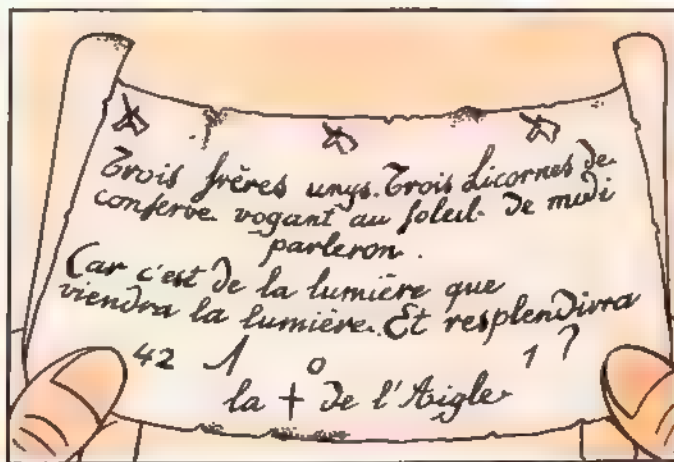 Trois frères unys. Trois Licornes de
conserve vogant au soleil de midi
parleron.
Car c'est de la lumière que
viendra la lumière. Et resplendira
42 1 0 1 7
la + de l'Aigle